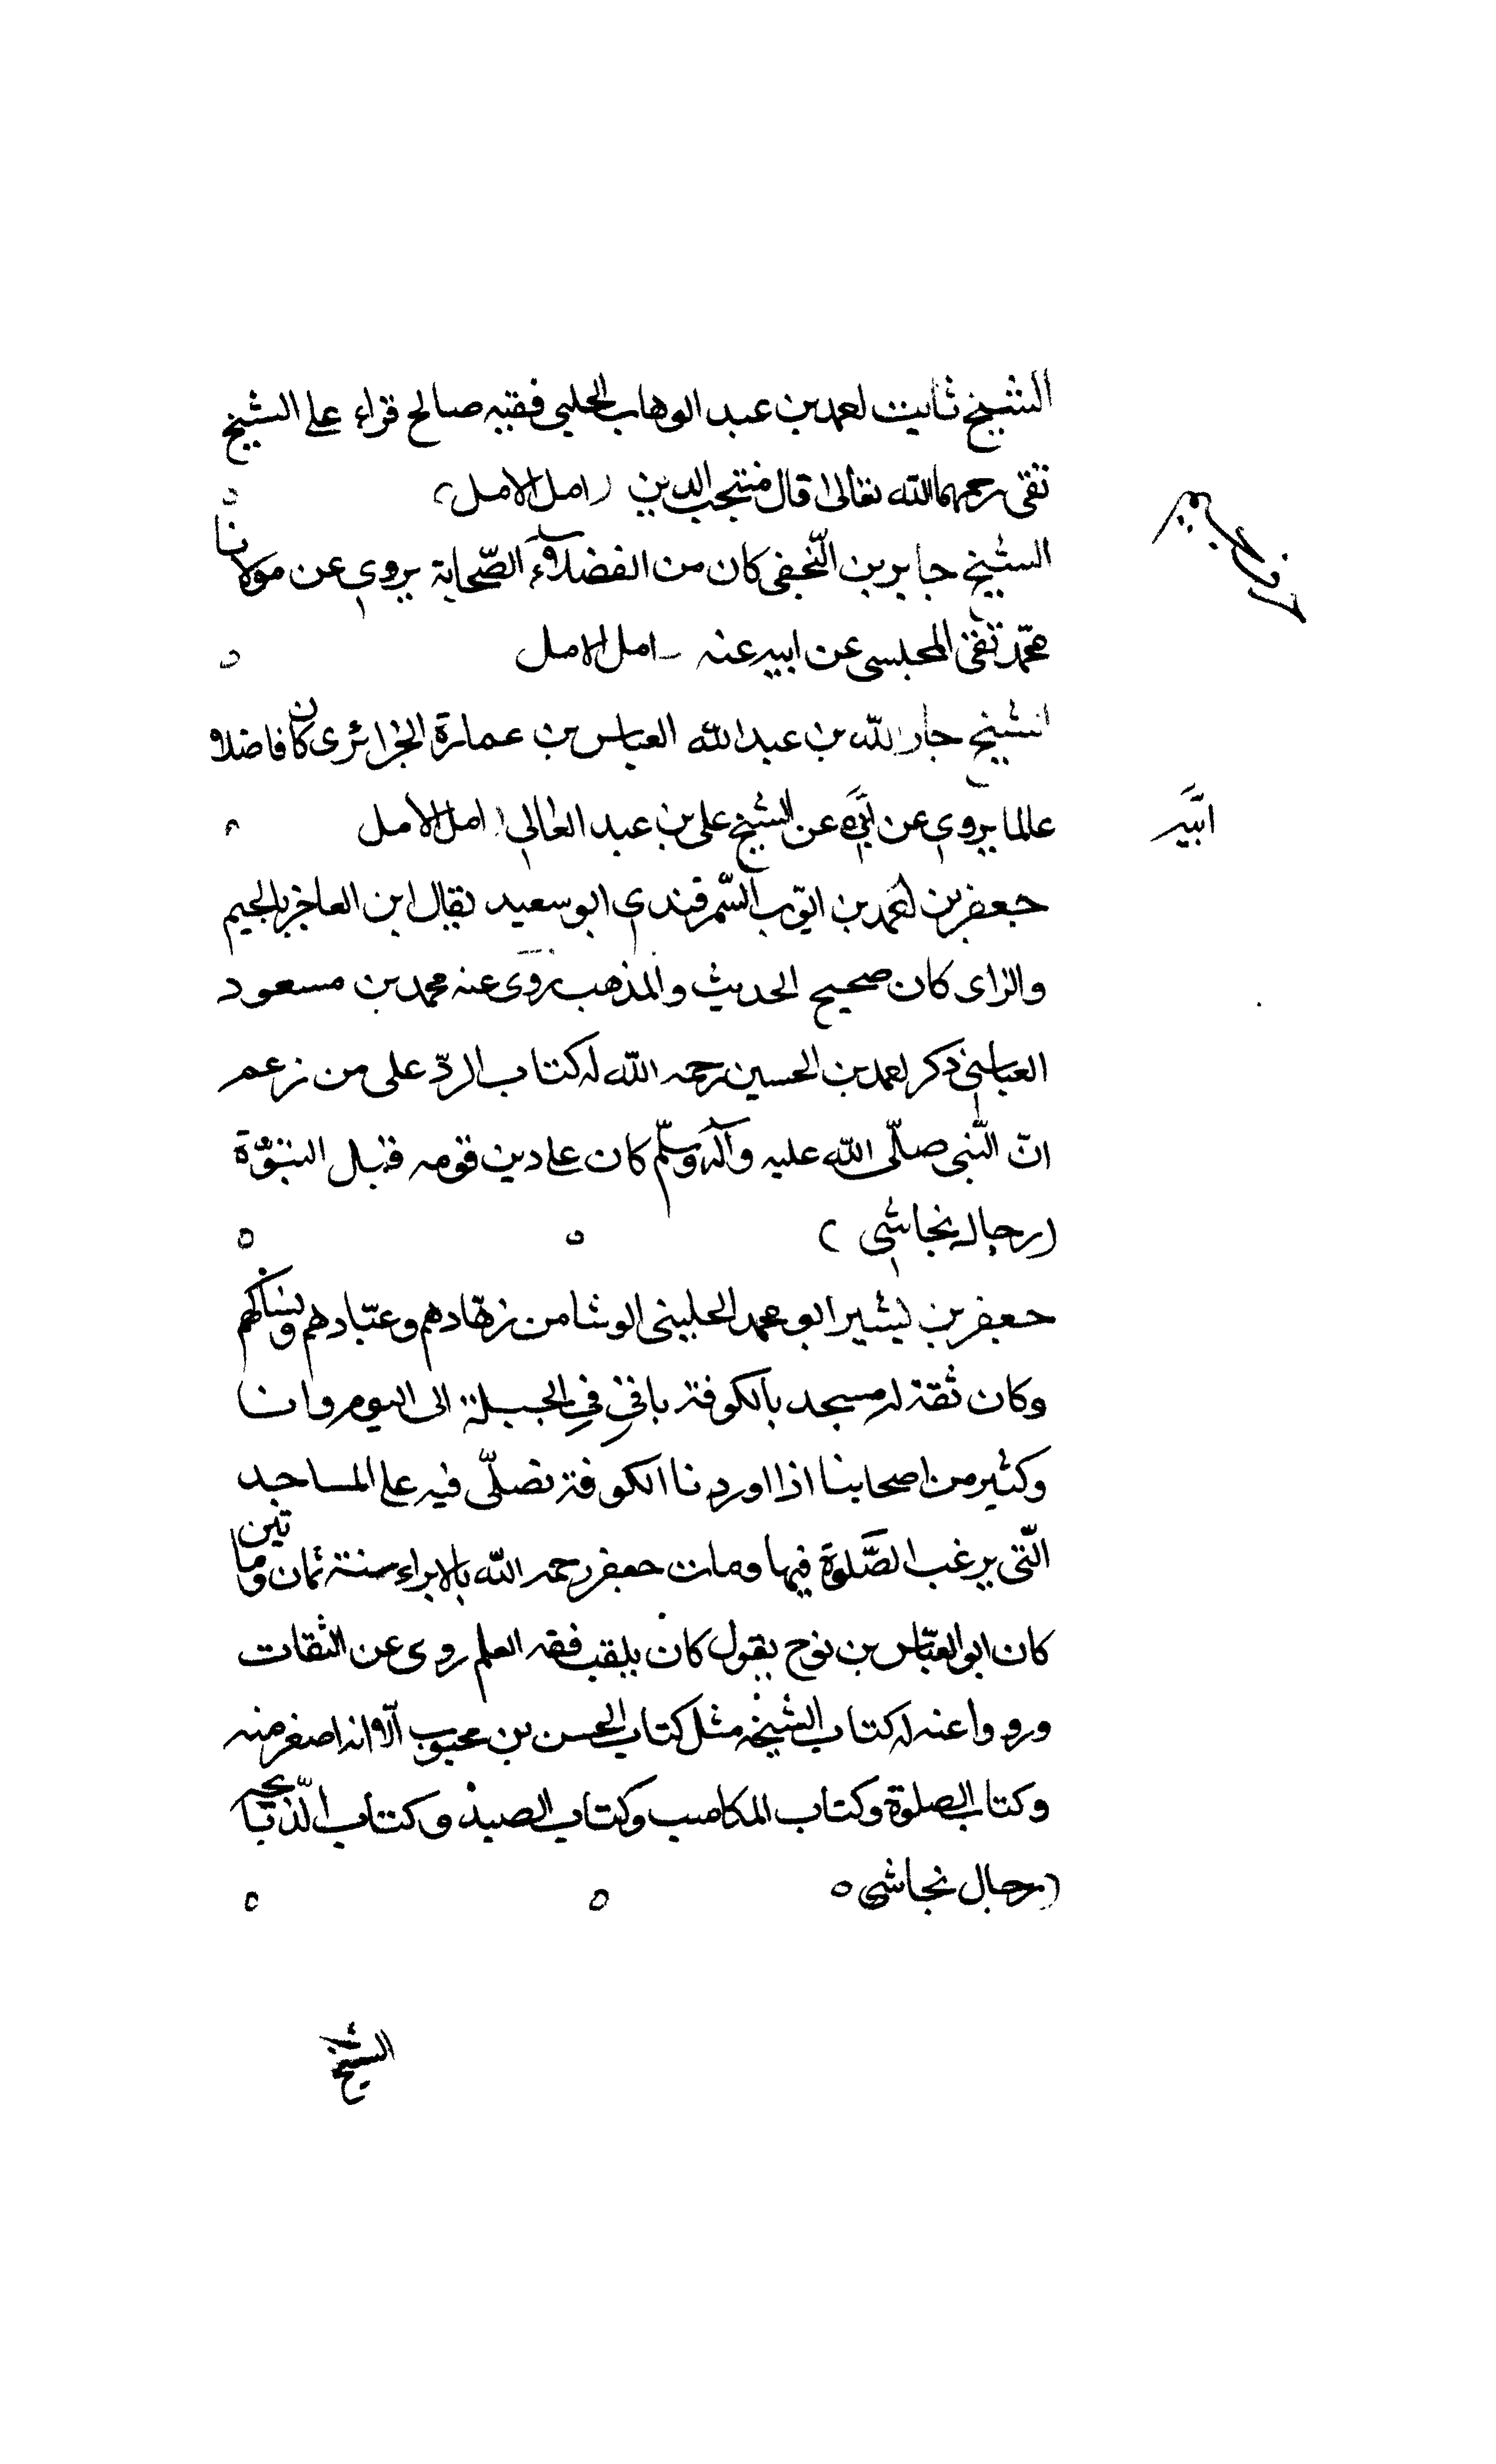 الشيخ ثابت احمد بن عبد الوهاب الحلبى فقيه صالح قراء على الشيخ
تقى رحمهما الله تعالى قال منتجب الدين (امل الامل)
الشيخ جابر بن النّجفى كان من الفضلاء الصّحابة يروى عن مولانا
محمّد تقى المجلسى عن ابيه عنه ـ امل الامل
الشيخ جار الله بن عبد الله العباس بن عمارة الجزائرى كان فاضلا
عالما يروى عن ابيه عن الشيخ على بن عبد العالى امل الامل
ابيه
جعفر بن احمد بن ايّوب السّمرقندى ابو سعيد يقال ابن العاجز بالجيم
والزاى كان صحيح الحديث والمذهب روى عنه محمد بن مسعود
العياشى ذكر احمد بن الحسين رحمه الله له كتاب الردّ على من زعم
انّ النّبى صلّى الله عليه وآله وسلّم كان على دين قومه قبل النبوّة
(رجال نجاشى)
جعفر بن بشير ابو محمد البجلينى الوشا من زهّادهم وعبّادهم ونسّاكهم
وكان ثقة له مسجد بالكوفة باقى فى البجيلة الى اليوم وانا
وكثير من اصحابنا اذا اوردنا الكوفة نصلّى فيه على المساجد
الّتى يرغب الصّلوة فيها ومات جعفر رحمه الله بالابراء سنة ثمان وماتين
كان ابو العبّاس بن نوح يقول كان يلقب فقه العلم روى عن الثقات
ورووا عنه له كتاب الشيخة مثل كتاب الحسن بن محبوب الّا انه اصغر منه
وكتاب الصلوة وكتاب المكاسب وكتاب الصيد وكتاب الذّبايح
(رجال نجاشى
الشيخ